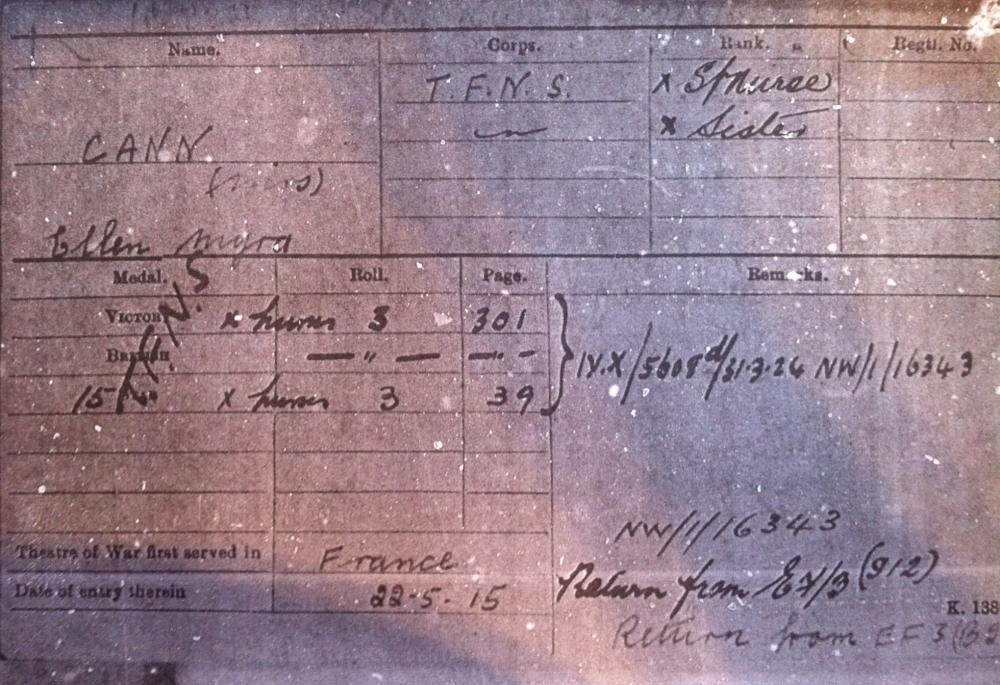 Name. Corps. Rank. Regtl. No.
T.F.N.S. x S/Nurse
CANN x Sister
(Miss)
Ellen Myra
Medal. Roll. Page. Remarks.
VICTORY x Nurses 3 301
BRITISH — " — — " —
IV.X/5608d/31.3.24 NW/1/16343
15 x Nurses 3 39
NW/1/16343
Theatre of War first served in France
Return from (912)
Date of entry therein 22-5-15
K. 138
Return from EF 3